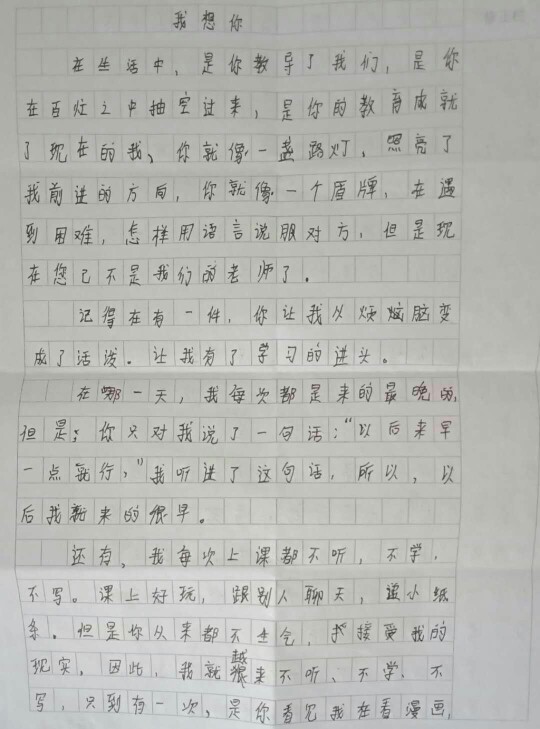 我想你
在生活中，是你教导了我们，是你
在百灶之中抽空过来，是你的教育成就
了现在的我、你就像一盏路灯、照亮了
我前进的方向，你就像一个盾牌，在遇
到困难，怎样用语言说服对方，但是现
在您已不是我们的老师了。
记得在有一件，你让我从烦恼脑变
成了活泼。让我有了学习的进头。
在哪一天，我每次都是来的最晚的，
但是；你只对我说了一句话：“以后来早
一点就行，”我听进了这句话，所以，以
后我就来的很早。
还有，我每次上课都不听，不学，
不写。课上好玩，跟别人聊天，递小纸
条。但是你从来都不生气，接受我的
现实，因此，我就越来不听、不学、不
写，只到有一次，是你看见我在看漫画，